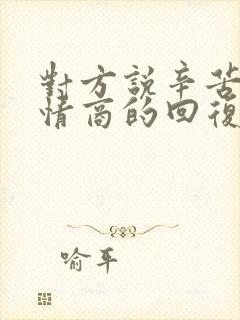 對方說辛苦
情商的回復
喻平